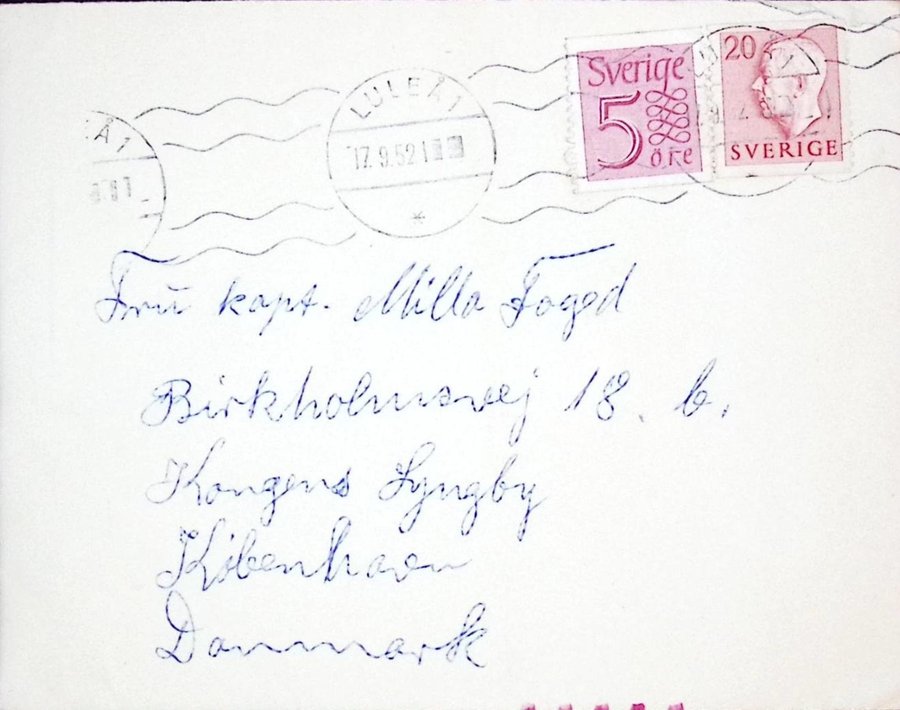 LULEÅ 1
17. 9. 52 1
Å 1
Sverige
5
öre
20
SVERIGE
Fru kapt. Milla Foged
Birkholmsvej 18. b.
Kongens Lyngby
København
Danmark